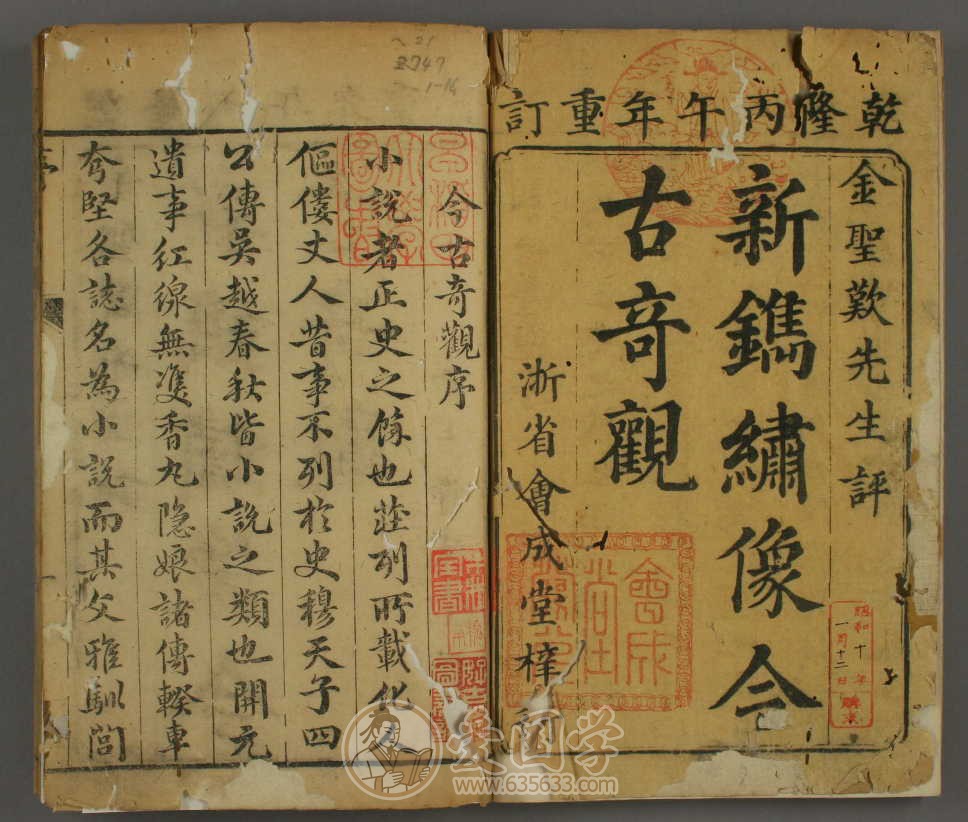 乾隆丙午年重訂
金聖歎先生評
新鐫繡像今
古奇觀
浙省會成堂梓行
昭和十年
一月十二日
購求
今古奇觀序
小說者正史之餘也莊列所載化人
傴僂丈人昔事不列於史穆天子四
公傳吳越春秋皆小說之類也開元
遺事紅線無雙香丸隐娘諸傳睽車
夸堅各誌名為小說而其文雅馴閭
21
2747
1-16
愛国学
www.635633.com